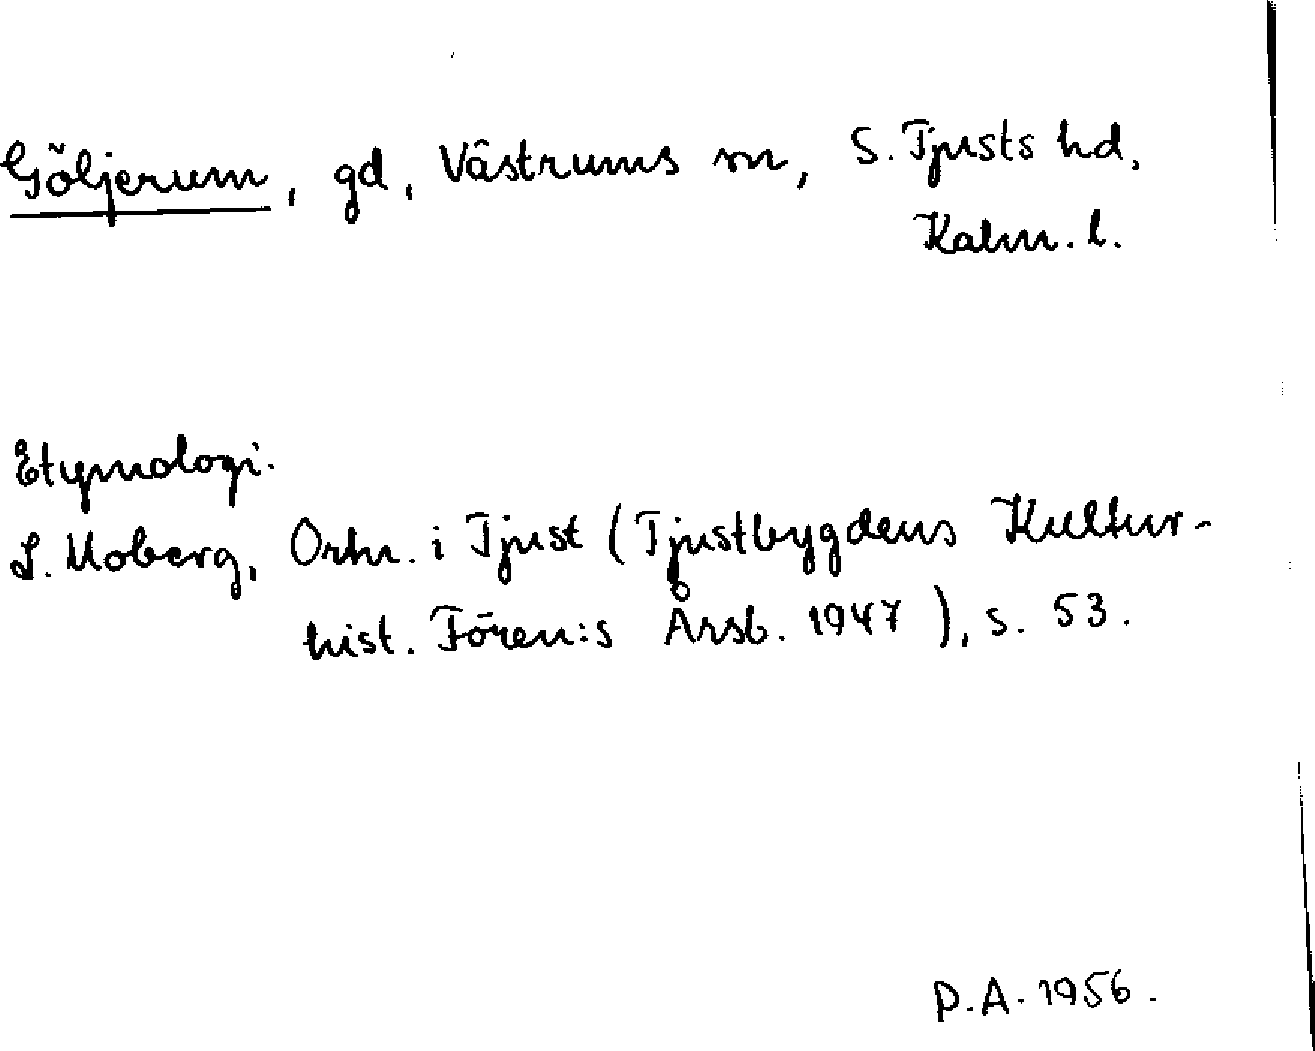 Göljerum, gd, Västrums sn, S. Tjusts hd,
Kalm. l.
Etymologi.
L. Moberg, Ortn. i Tjust (Tjustbygdens Kultur-
hist. Fören:s Årsb. 1947), s. 53.
P.A. 1956.